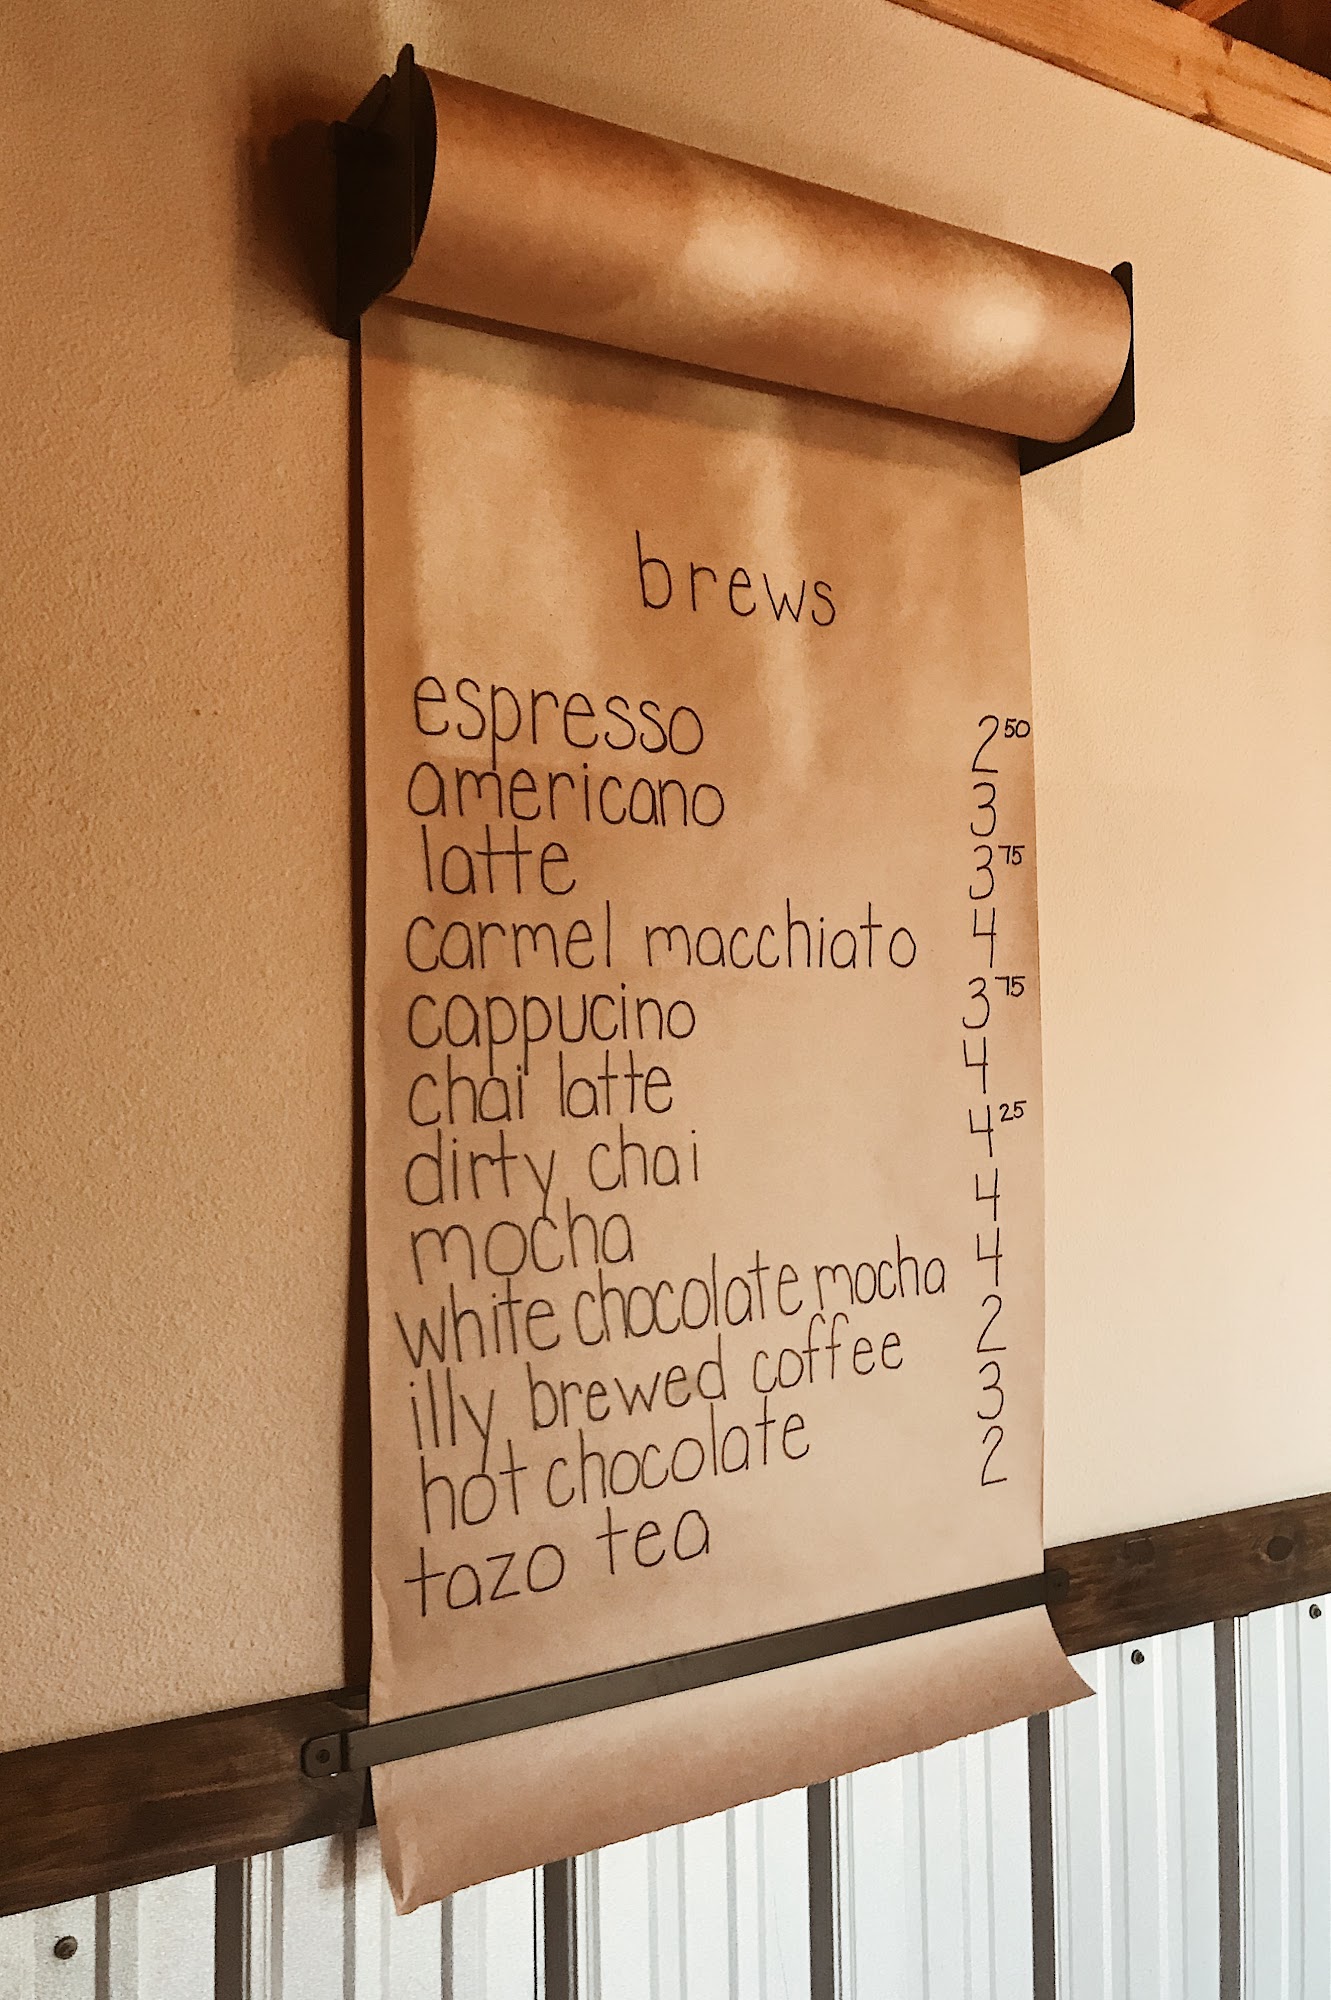 brews
espresso 2 50
americano 3
latte 3 75
carmel macchiato 4
cappucino 3 75
chai latte 4
dirty chai 4 25
mocha 4
white chocolate mocha 4
illy brewed coffee 2
hot chocolate 3
tazo tea 2